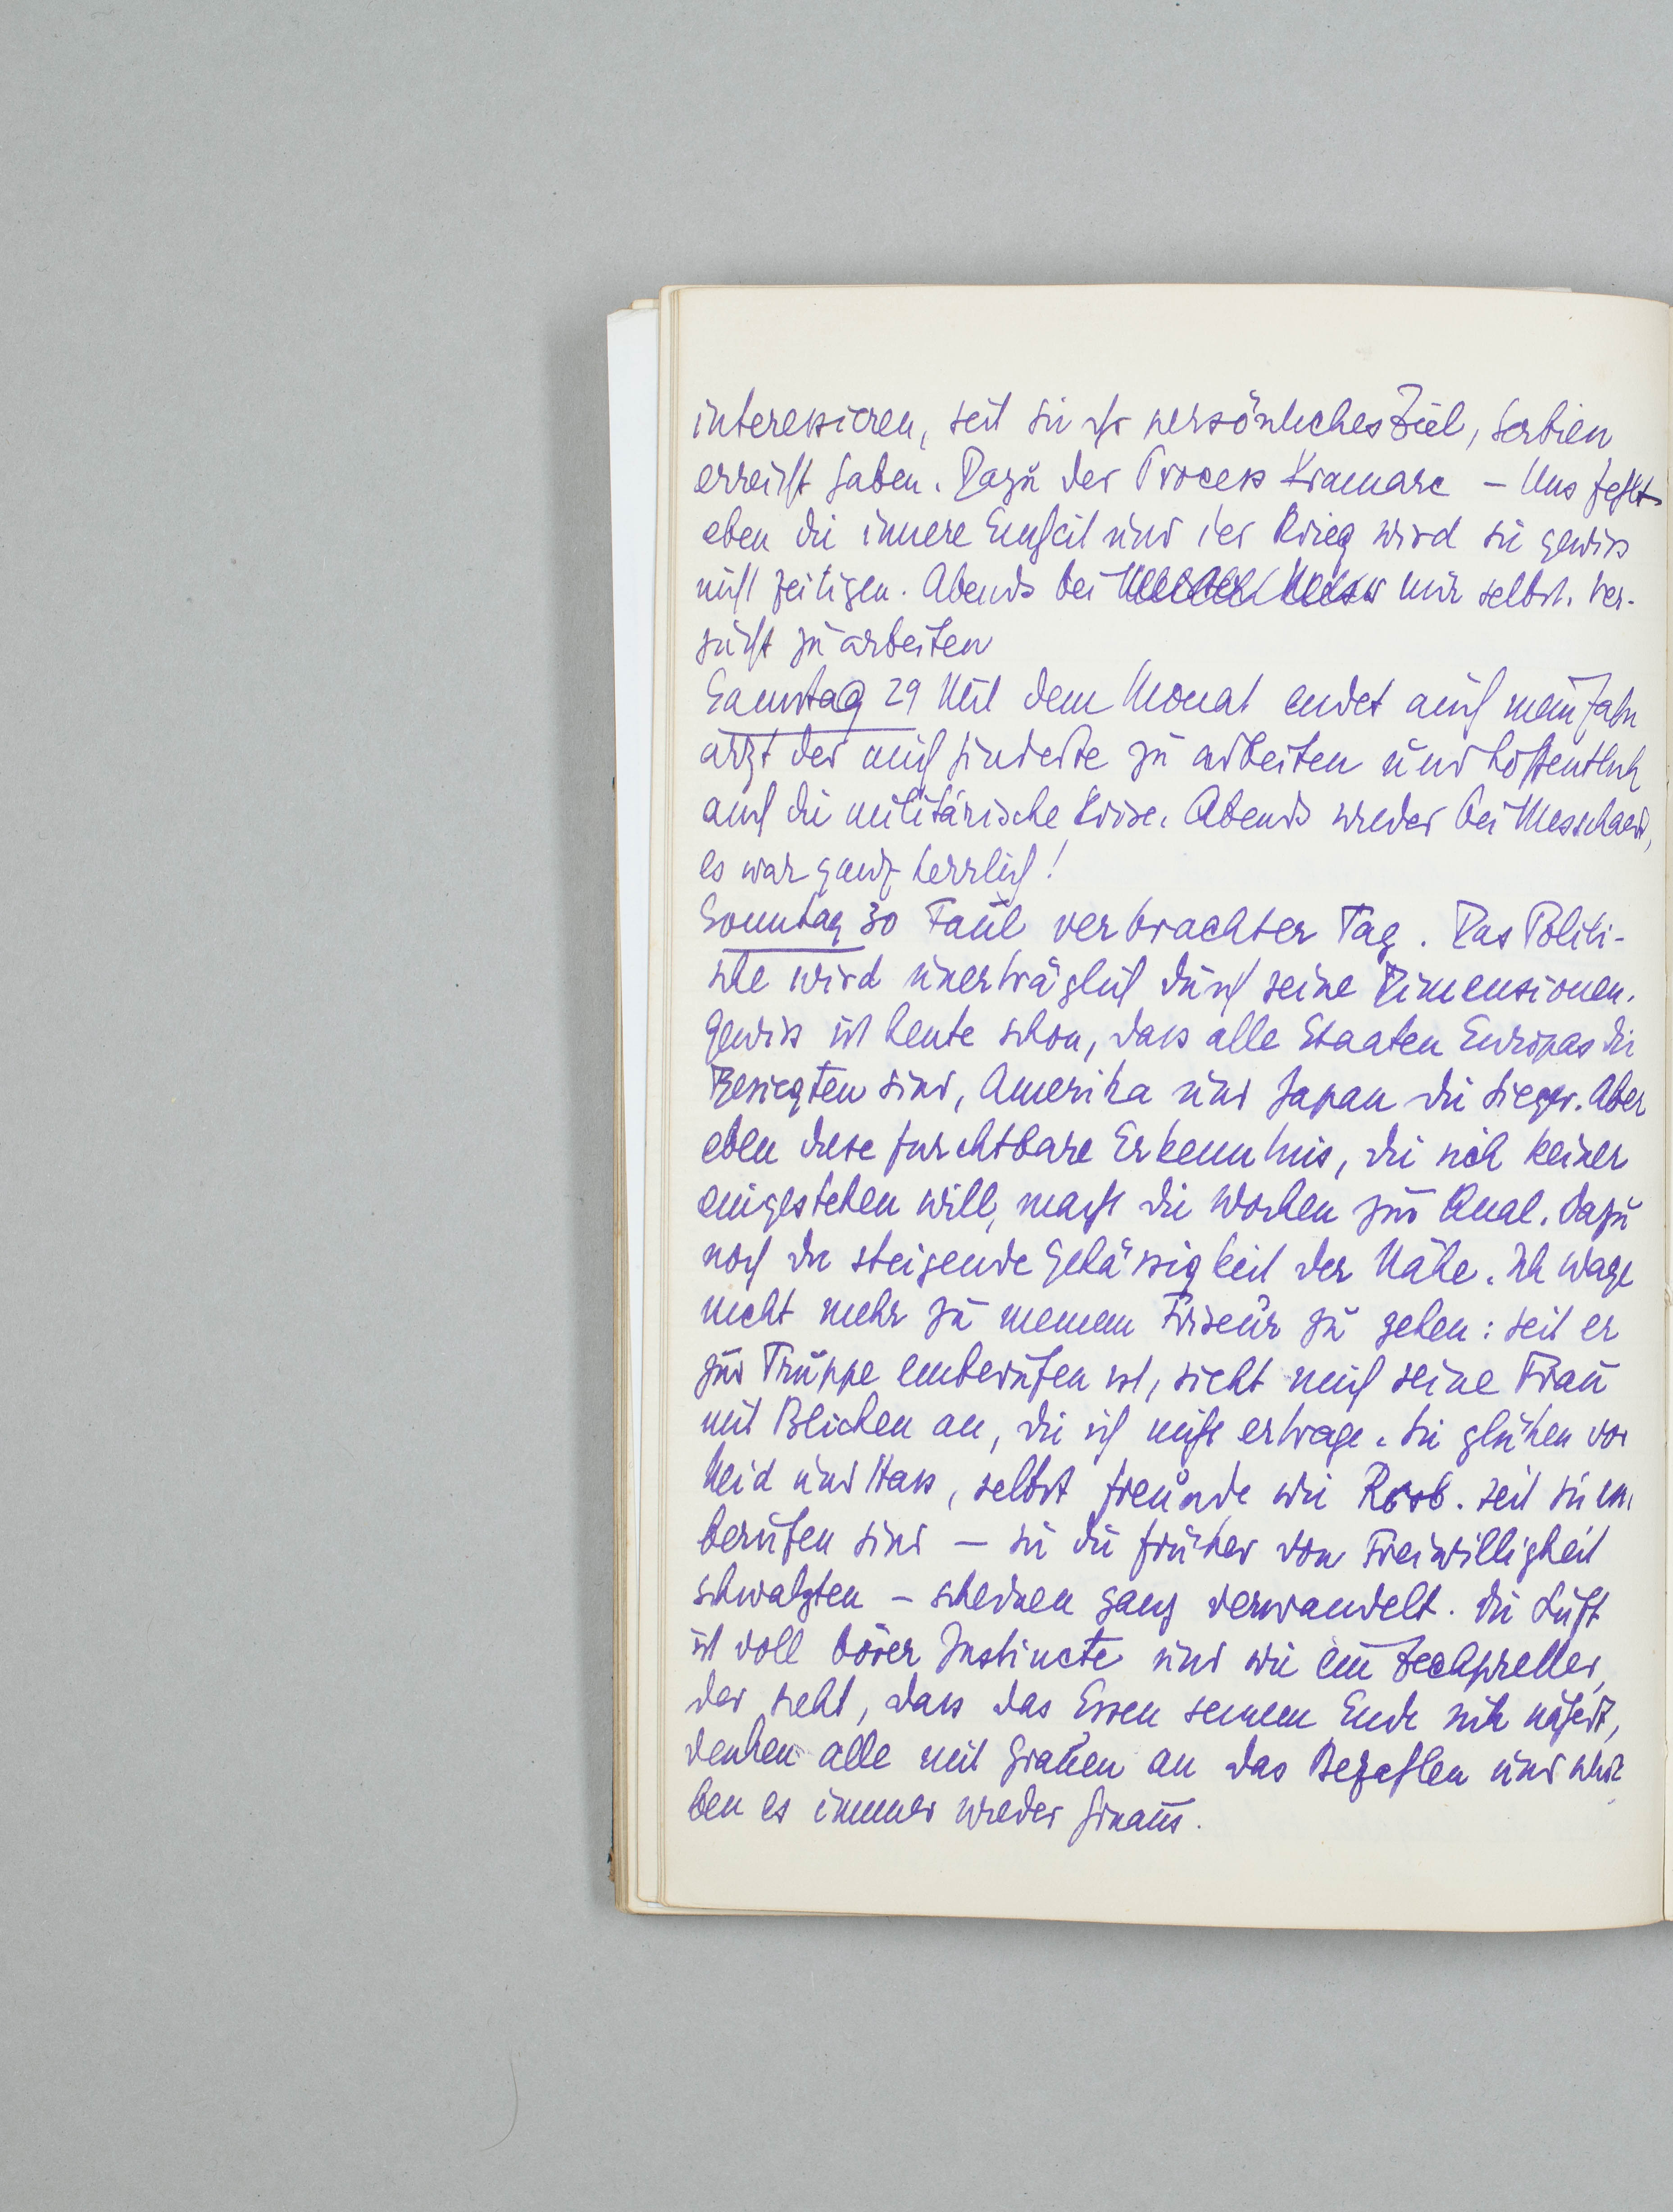 interessieren, seit sie ihr persönliches Ziel, Serbien
erreicht haben. Dazu der Process Kramarc – Uns fehlt
eben die innere Einheit und der Krieg wird sie gewiss
nicht zeitigen. Abends bei mir selbst. Ver-
sucht zu arbeiten
Samstag 29 Mit dem Monat endet auch mein Zahn
arzt der mich hinderte zu arbeiten und hoffentlich
auch die militärische Krise. Abends wieder bei Messchaert,
es war ganz herrlich!
Sonntag 30 Faul verbrachter Tag. Das Politi-
sche wird unerträglich durch seine Dimensionen.
Gewiss ist heute schon, dass alle Staaten Europas die
Besiegten sind, Amerika und Japan die Sieger. Aber
eben diese furchtbare Erkenntnis, die sich keiner
eingestehen will, macht die Wochen zur Qual. Dazu
noch die steigende Gehässigkeit der Nähe. Ich wage
nicht mehr zu meinem Friseur zu gehen: seit er
zur Truppe einberufen ist, sieht mich seine Frau
mit Blicken an, die ich nicht ertrage. Sie glühen vor
Neid und Hass, selbst Freunde wie Rosb. seit sie ein
berufen sind – sie die früher von Freiwilligkeit
schwatzten – scheinen ganz verwandelt. Die Luft
ist voll böser Instincte und wie ein Zechpreller,
der sieht, dass das Essen seinem Ende sich nähert,
denken alle mit Grauen an das Bezahlen und schie
ben es immer wieder hinaus.